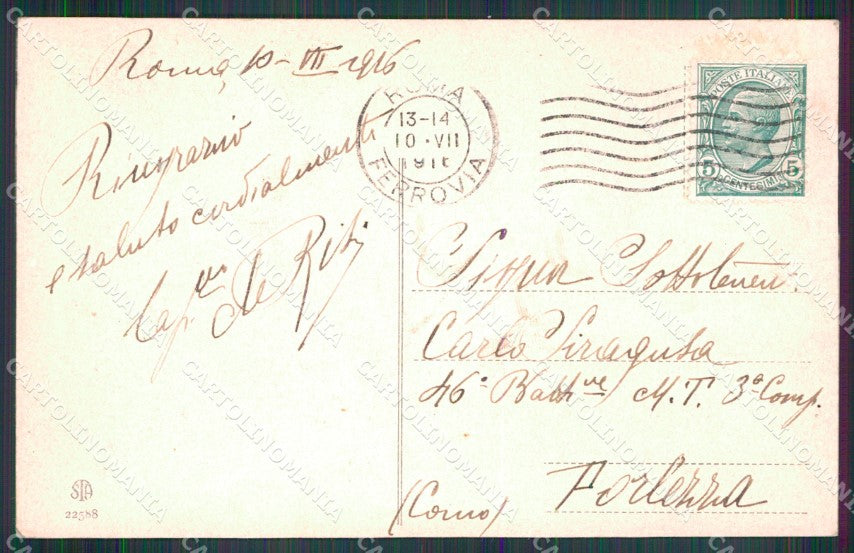 Roma, 10-VII 1916
Ringrazio
e saluto cordialmente
Cap.no de
ROMA
13-14
10·VII
1916
FERROVIA
POSTE ITALIANE
5 5
CENTESIMI
Signor Sottoten.
Carlo Siragusa
46° Batt.ne M.T. 3a Comp.
Porlezza
(Como)
STA
22588
CARTOLINOMANIA